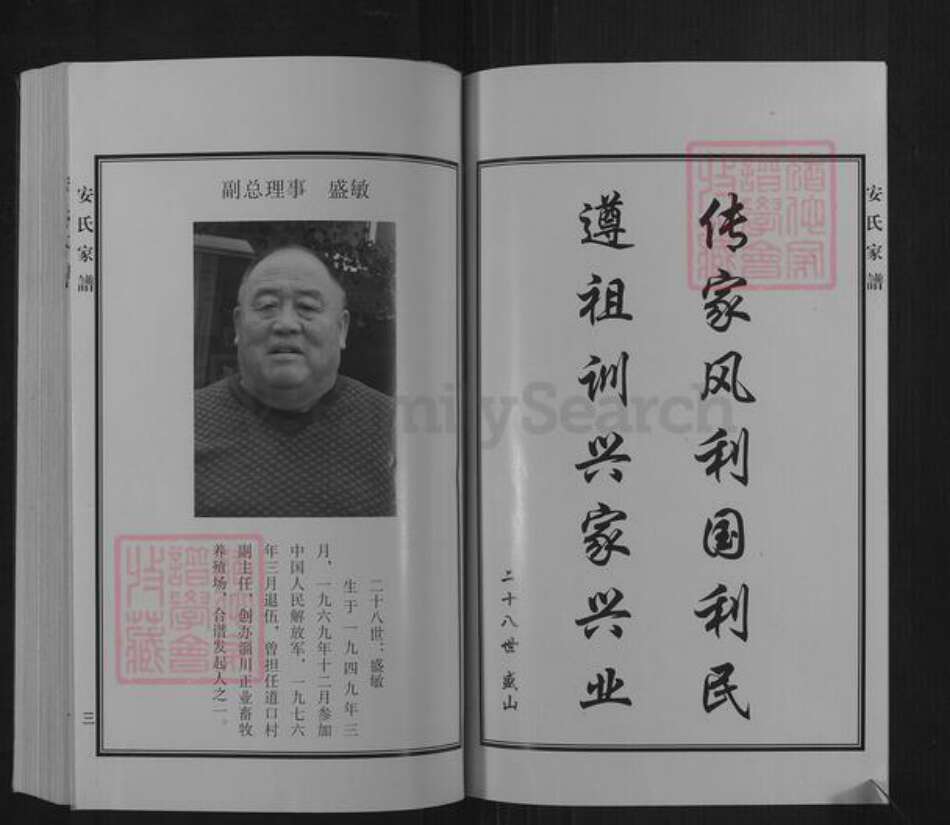 安氏家譜
传家风利国利民
遵祖训兴家兴业
二十八世 盛山
副总理事 盛敏
二十八世：盛敏
生于一九四九年三
月，一九六九年十二月参加
中国人民解放军，一九七六
年三月退伍，曾担任道口村
副主任，创办淄川正业畜牧
养殖场，合谱发起人之一。
安氏家譜
三
FamilySearch